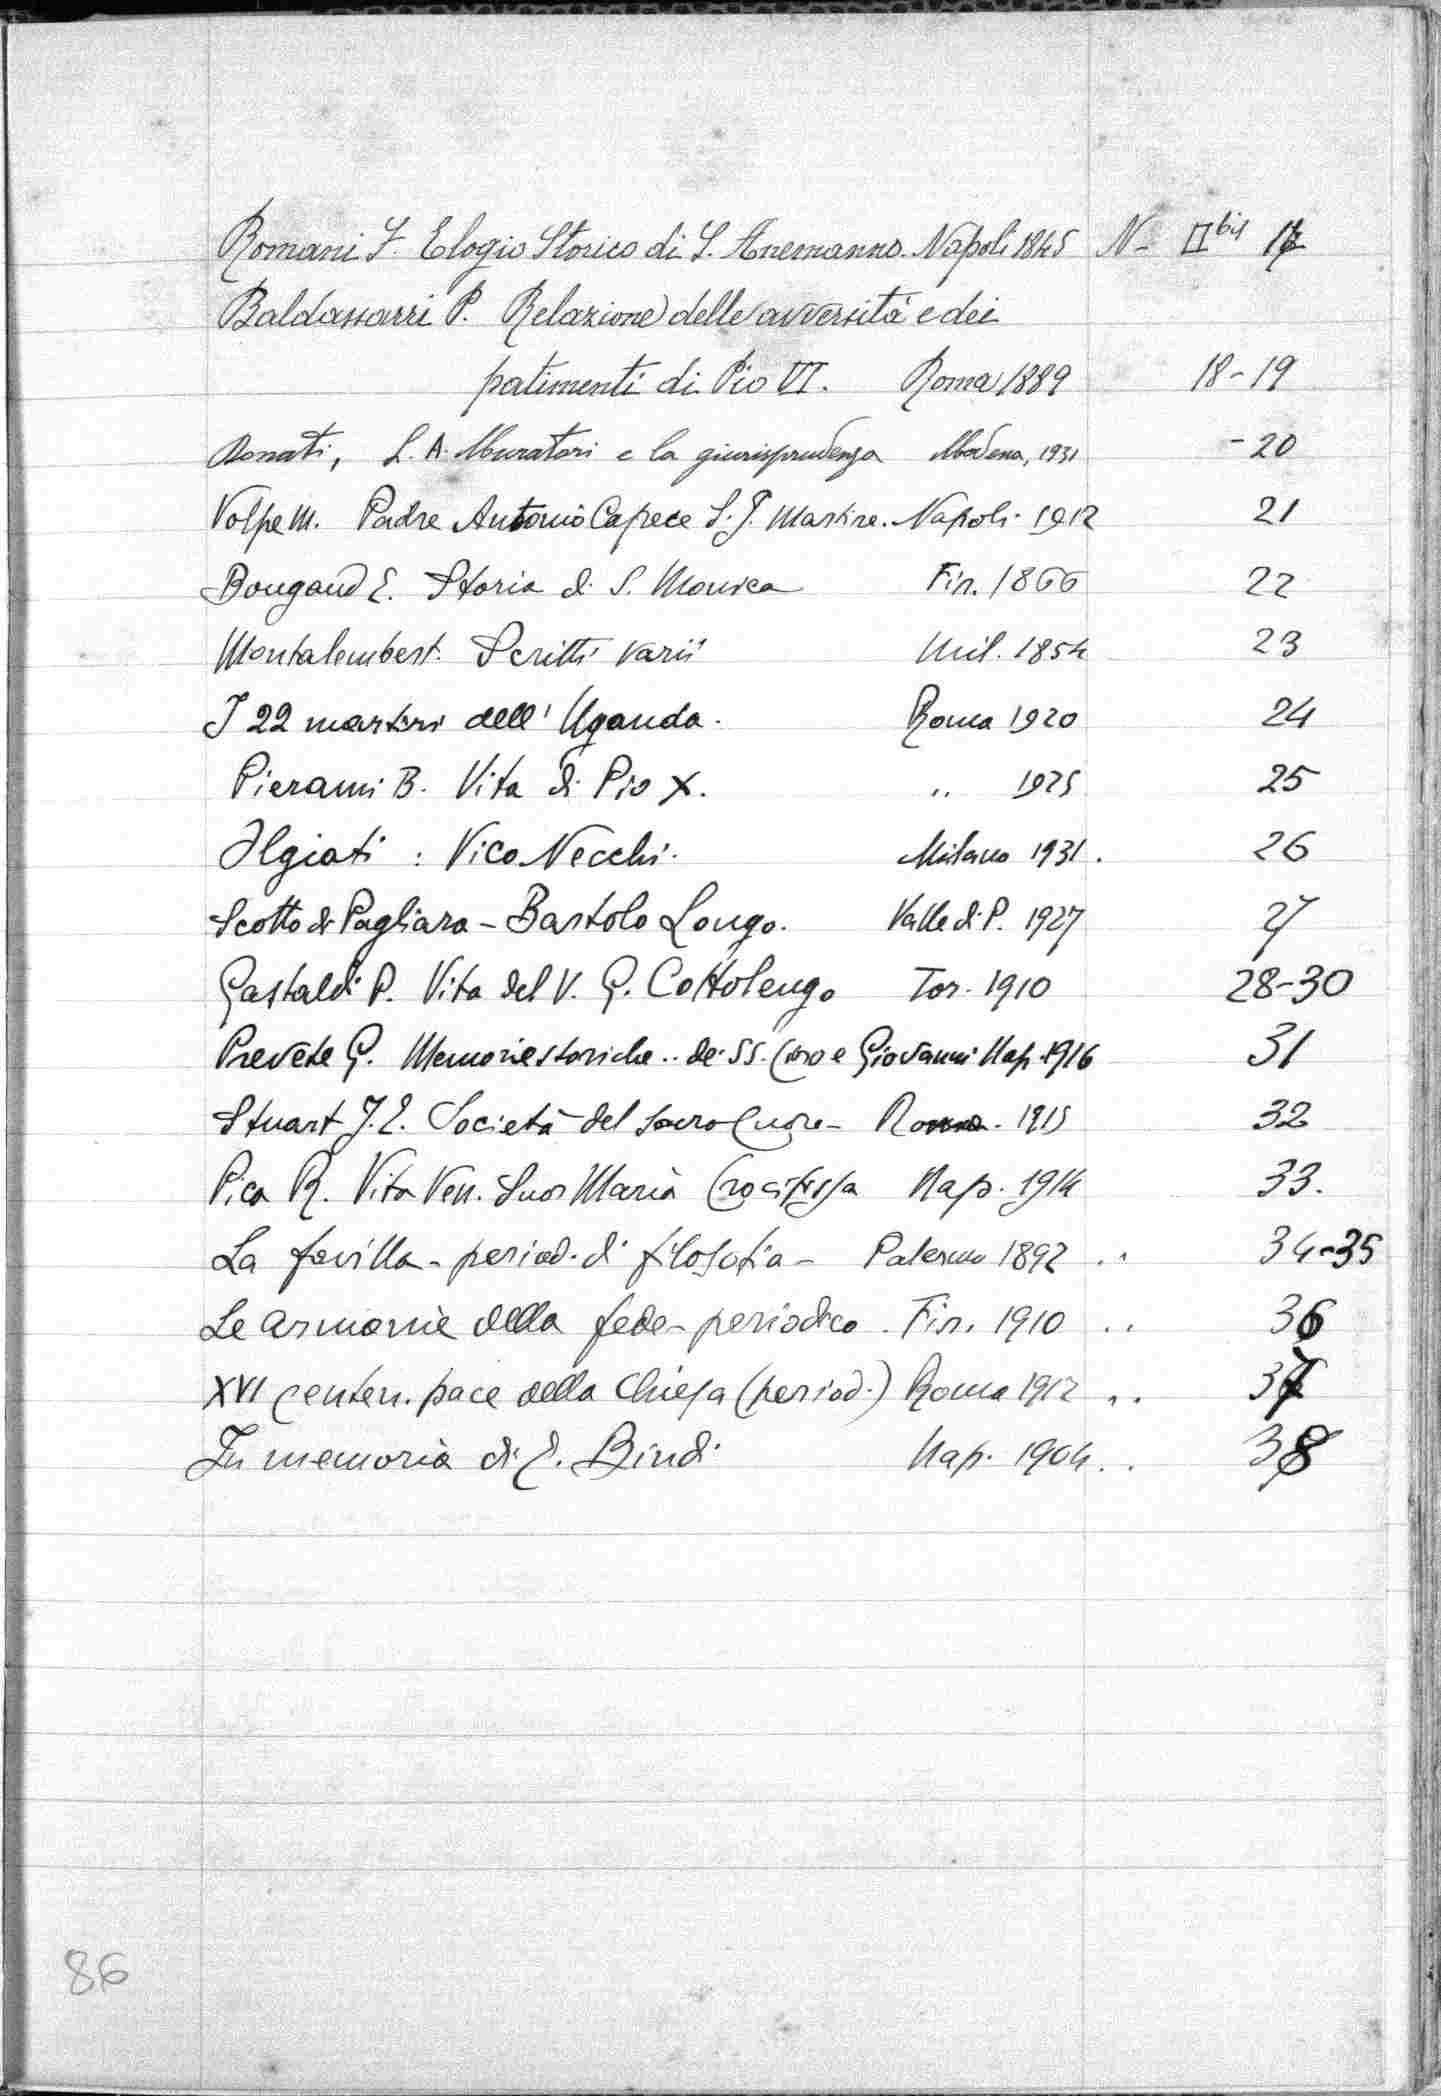 Romani F. Elogio Storico di S. Anemanno. Napoli 1845 N- II bis 17
Baldassarri P. Relazione delle avversità e dei
patimenti di Pio VI. Roma 1889 18-19
Donati, L. A. Muratori e la giurisprudenza Modena, 1931 -20
Volpe M. Padre Antonio Capece S. J. Martire. Napoli. 1912 21
Bougaud E. Storia di S. Monica Fir. 1866 22
Montalembert. Scritti varii Mil. 1854 23
I 22 martiri dell' Uganda. Roma 1920 24
Pierami B. Vita di Pio X. ,, 1925 25
Olgiati : Vico Necchi. Milano 1931. 26
Scotto di Pagliara - Bartolo Longo. Valle di P. 1927 27
Gastaldi P. Vita del V. G. Cottolengo Tor. 1910 28-30
Prevete G. Memorie storiche .. dei SS. Ciro e Giovanni Nap. 1916 31
Stuart J. E. Società del Sacro Cuore - Roma. 1915 32
Pica R. Vita Ven. Suor Maria Crocifissa Nap. 1914 33.
La favilla - period. di filosofia - Palermo 1892 .. 34-35
Le armonie della fede - periodico. Fir. 1910 .. 36
XVI centen. pace della Chiesa (period.) Roma 1912 .. 37
In memoria di E. Bindi Nap. 1904 .. 38
86